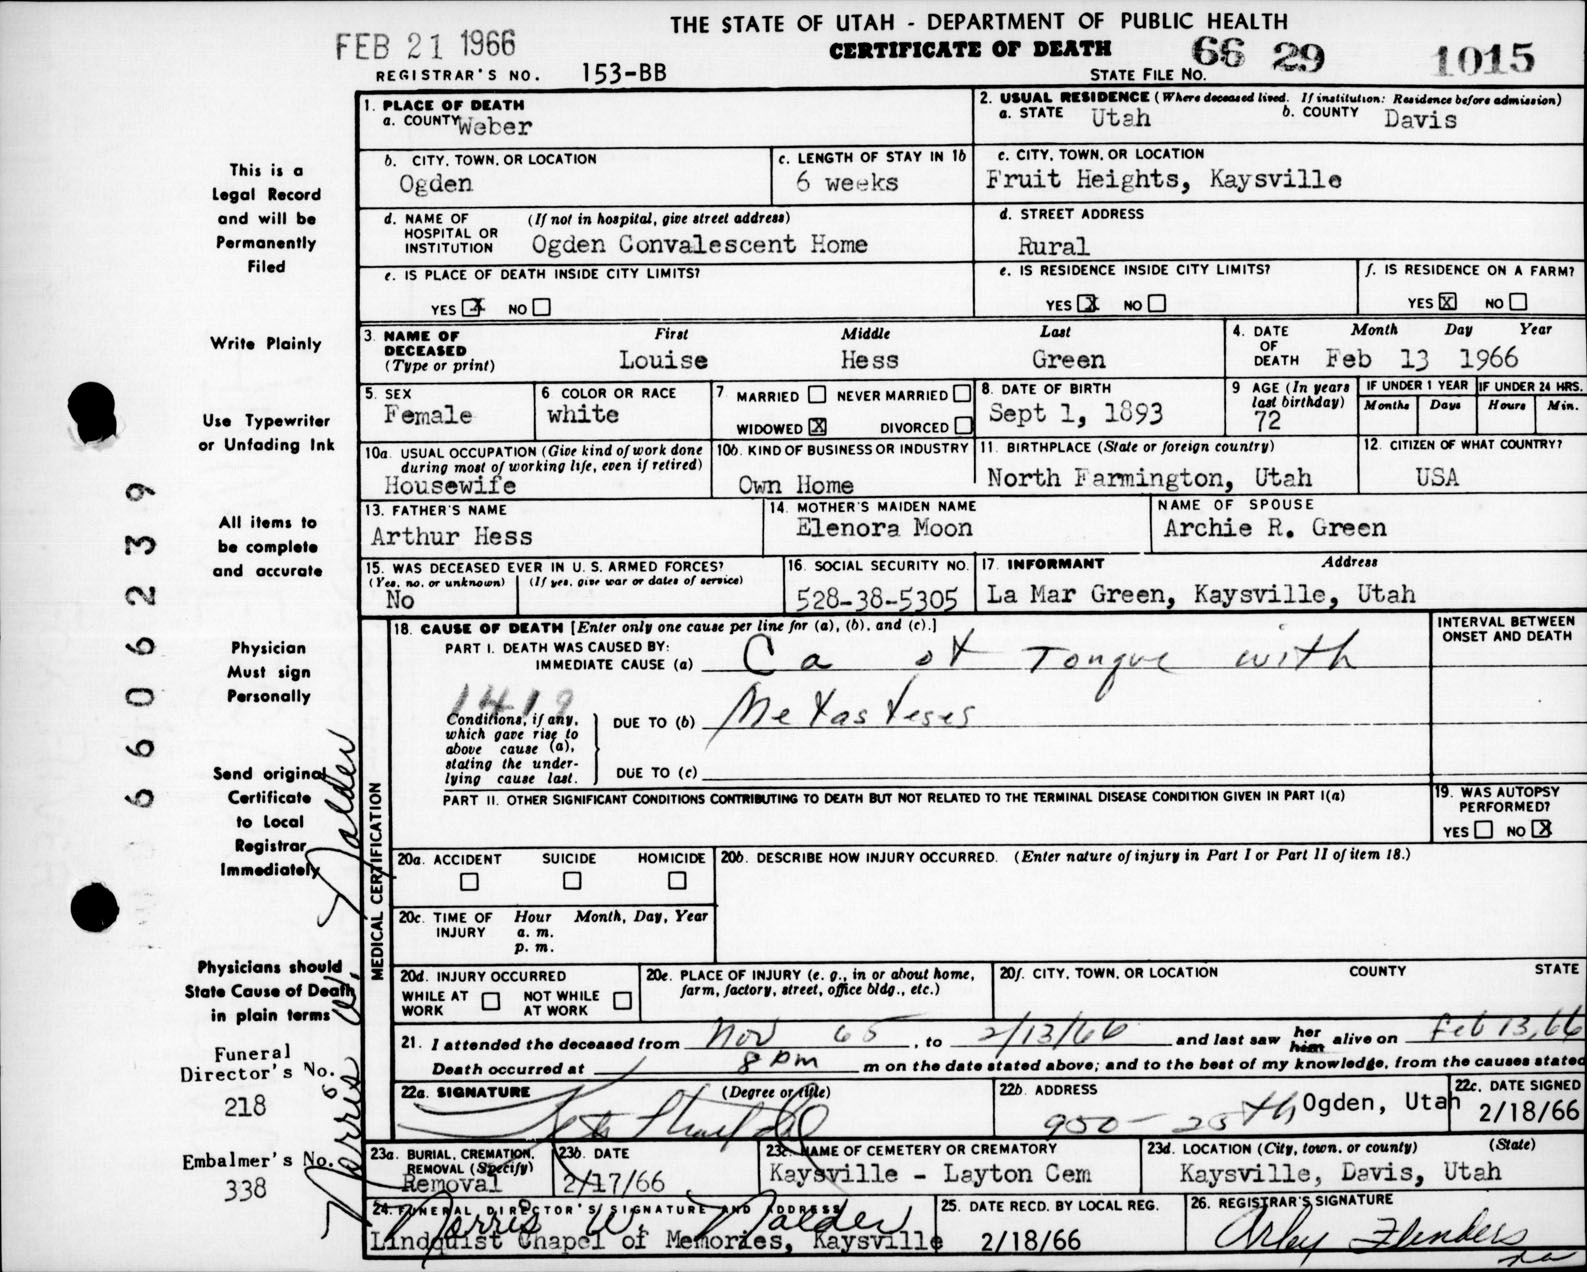 THE STATE OF UTAH - DEPARTMENT OF PUBLIC HEALTH
FEB 21 1966
CERTIFICATE OF DEATH 66 29 1015
REGISTRAR'S NO. 153-BB
STATE FILE NO.
1. PLACE OF DEATH
a. COUNTY Weber
2. USUAL RESIDENCE (Where deceased lived. If institution: Residence before admission)
a. STATE Utah b. COUNTY Davis
b. CITY, TOWN, OR LOCATION
Ogden
c. LENGTH OF STAY IN 1b
6 weeks
c. CITY, TOWN, OR LOCATION
Fruit Heights, Kaysville
d. NAME OF HOSPITAL OR INSTITUTION (If not in hospital, give street address)
Ogden Convalescent Home
d. STREET ADDRESS
Rural
e. IS PLACE OF DEATH INSIDE CITY LIMITS?
YES X NO
e. IS RESIDENCE INSIDE CITY LIMITS?
YES X NO
f. IS RESIDENCE ON A FARM?
YES X NO
3. NAME OF DECEASED (Type or print)
First Middle Last
Louise Hess Green
4. DATE OF DEATH Month Day Year
Feb 13 1966
5. SEX
Female
6 COLOR OR RACE
white
7 MARRIED NEVER MARRIED
WIDOWED X DIVORCED
8. DATE OF BIRTH
Sept 1, 1893
9 AGE (In years last birthday)
72
IF UNDER 1 YEAR IF UNDER 24 HRS.
Months Days Hours Min.
10a. USUAL OCCUPATION (Give kind of work done during most of working life, even if retired)
Housewife
10b. KIND OF BUSINESS OR INDUSTRY
Own Home
11. BIRTHPLACE (State or foreign country)
North Farmington, Utah
12. CITIZEN OF WHAT COUNTRY?
USA
13. FATHER'S NAME
Arthur Hess
14. MOTHER'S MAIDEN NAME
Elenora Moon
NAME OF SPOUSE
Archie R. Green
15. WAS DECEASED EVER IN U. S. ARMED FORCES?
(Yes, no, or unknown) (If yes, give war or dates of service)
No
16. SOCIAL SECURITY NO.
528-38-5305
17. INFORMANT Address
La Mar Green, Kaysville, Utah
MEDICAL CERTIFICATION
18. CAUSE OF DEATH [Enter only one cause per line for (a), (b), and (c).]
INTERVAL BETWEEN ONSET AND DEATH
PART I. DEATH WAS CAUSED BY:
IMMEDIATE CAUSE (a) Ca of Tongue with
1419
Conditions, if any, which gave rise to above cause (a), stating the underlying cause last.
DUE TO (b) Metasteses
DUE TO (c)
PART II. OTHER SIGNIFICANT CONDITIONS CONTRIBUTING TO DEATH BUT NOT RELATED TO THE TERMINAL DISEASE CONDITION GIVEN IN PART I(a)
19. WAS AUTOPSY PERFORMED?
YES NO X
20a. ACCIDENT SUICIDE HOMICIDE
20b. DESCRIBE HOW INJURY OCCURRED. (Enter nature of injury in Part I or Part II of item 18.)
20c. TIME OF INJURY Hour Month, Day, Year
a. m.
p. m.
20d. INJURY OCCURRED
WHILE AT WORK NOT WHILE AT WORK
20e. PLACE OF INJURY (e. g., in or about home, farm, factory, street, office bldg., etc.)
20f. CITY, TOWN, OR LOCATION COUNTY STATE
21. I attended the deceased from Nov 65, to 2/13/66 and last saw her him alive on Feb 13, 66
Death occurred at 8 pm m on the date stated above; and to the best of my knowledge, from the causes stated
22a. SIGNATURE (Degree or title)
22b. ADDRESS
950 - 25th Ogden, Utah
22c. DATE SIGNED
2/18/66
23a. BURIAL, CREMATION, REMOVAL (Specify)
Removal
23b. DATE
2/17/66
23c. NAME OF CEMETERY OR CREMATORY
Kaysville - Layton Cem
23d. LOCATION (City, town, or county) (State)
Kaysville, Davis, Utah
24. FUNERAL DIRECTOR'S SIGNATURE AND ADDRESS
Norris W. Nalder
Lindquist Chapel of Memories, Kaysville
25. DATE RECD. BY LOCAL REG.
2/18/66
26. REGISTRAR'S SIGNATURE
Arley Flinders
This is a
Legal Record
and will be
Permanently
Filed
Write Plainly
Use Typewriter
or Unfading Ink
All items to
be complete
and accurate
Physician
Must sign
Personally
Send original
Certificate
to Local
Registrar
Immediately
Physicians should
State Cause of Death
in plain terms
Funeral
Director's No.
218
Embalmer's No.
338
6606239
Norris W. Nalder